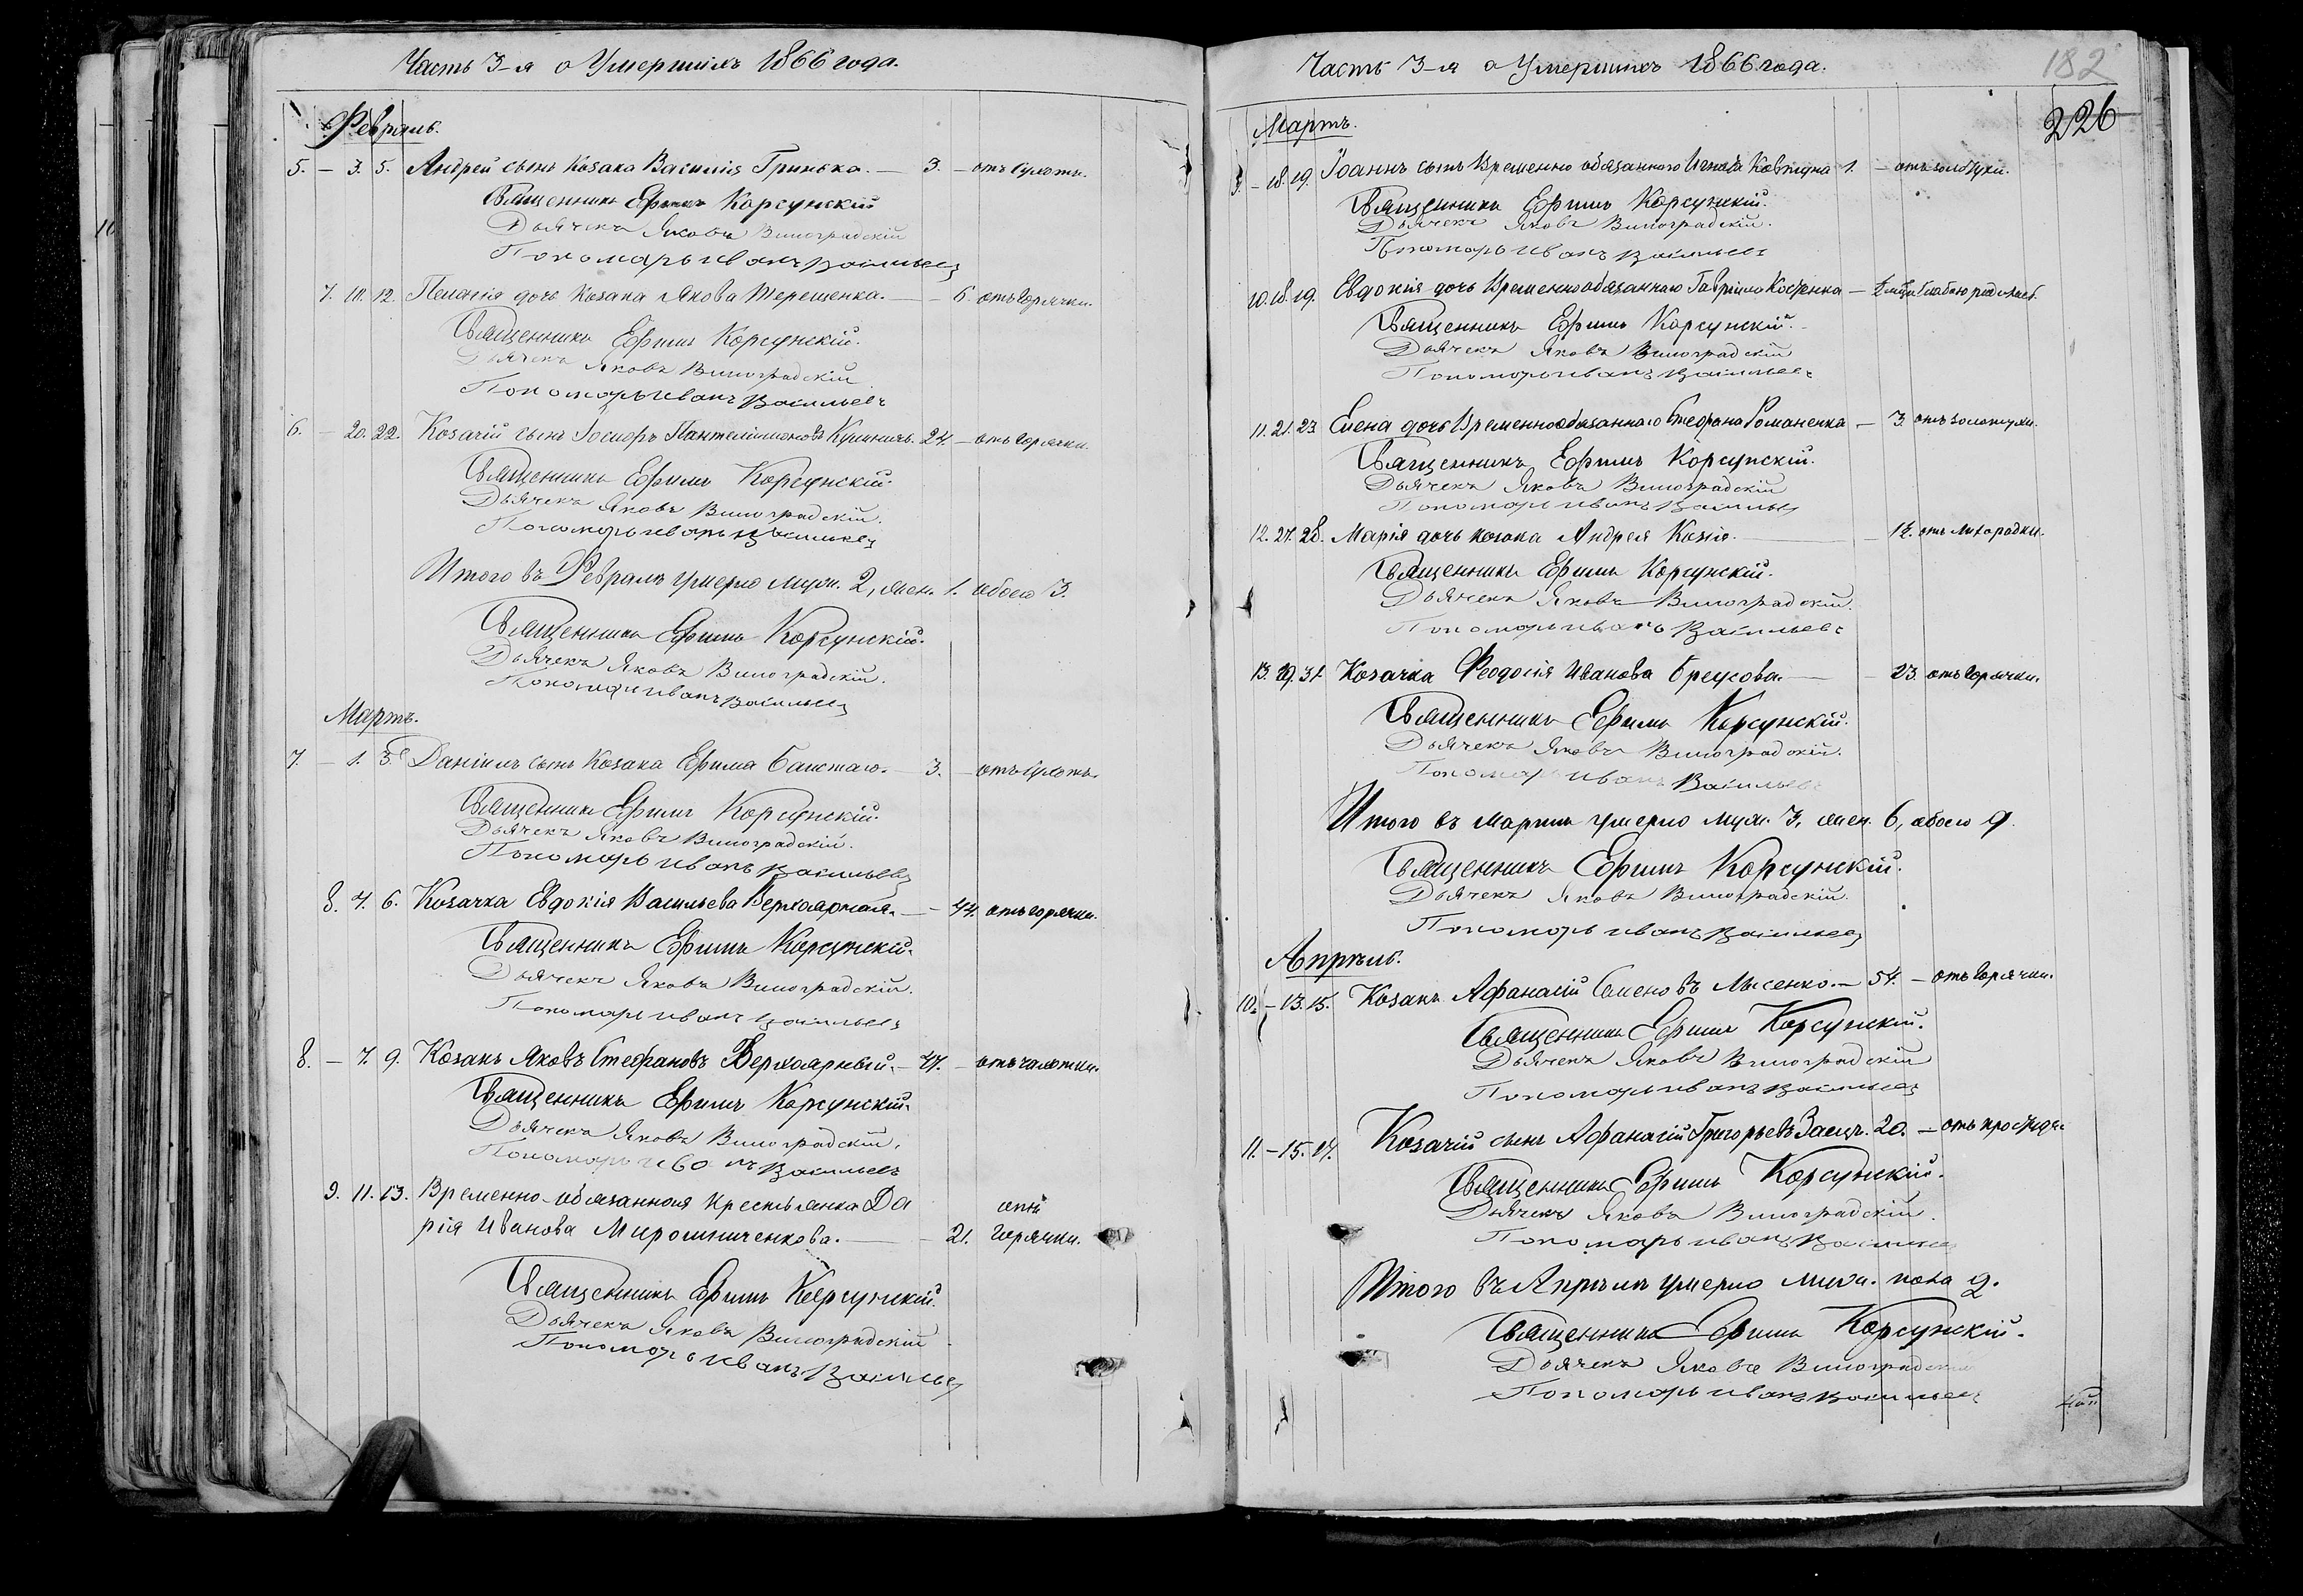 Часть 3-я о Умершихъ 1866 года.
Февраль.
5. – 3. 5. Андрей сынъ козака Василія Гринька. — 3. – отъ сухоты.
Священникъ Ефимъ Корсунскій
Дьячекъ Яковъ Виноградскій
Пономарь Иванъ Васильевъ
7. 10. 12. Пелагія дочь козака Якова Терешенка. — 6. отъ горячки.
Священникъ Ефимъ Корсунскій.
Дьячекъ Яковъ Виноградскій
Пономарь Иванъ Васильевъ
6. – 20. 22. Козачій сынъ Іосифъ Пантелиимоновъ 24. – отъ горячки.
Священникъ Ефимъ Корсунскій.
Дьячекъ Яковъ Виноградскій.
Пономарь Иванъ Васильевъ
Итого въ Февралѣ умерло муж. 2, жен. 1. обоего 3.
Священникъ Ефимъ Корсунскій.
Дьячекъ Яковъ Виноградскій.
Пономарь Иванъ Васильевъ
Мартъ.
7. – 1. 3. Даніилъ сынъ козака Ефима — 3. – отъ сухотъ.
Священникъ Ефимъ Корсунскій.
Дьячекъ Яковъ Виноградскій.
Пономарь Иванъ Васильевъ
8. 4. 6. Козачка Евдокія Васильева Верхоярная. — 44. отъ горячки.
Священникъ Ефимъ Корсунскій.
Дьячекъ Яковъ Виноградскій.
Пономарь Иванъ Васильевъ
8. – 7. 9. Козакъ Яковъ Стефановъ Верхоярный. – 47. – отъ чахотки.
Священникъ Ефимъ Корсунскій.
Дьячекъ Яковъ Виноградскій.
Пономарь Иванъ Васильевъ
9. 11. 13. Временно-обязанная крестьянка Да отъ
рія Иванова Мирошниченкова. — 21. горячки.
Священникъ Ефимъ Корсунскій.
Дьячекъ Яковъ Виноградскій
Пономарь Иванъ Васильевъ
Часть 3-я о Умершихъ 1866 года.
182
226
Мартъ.
9. – 18. 19. Іоаннъ сынъ Временно обязаннаго Игната 1. – отъ золотухи.
Священникъ Ефимъ Корсунскій.
Дьячекъ Яковъ Виноградскій.
Пономарь Иванъ Васильевъ
10. 18. 19. Евдокія дочь Временнообязаннаго Гавріила —
Священникъ Ефимъ Корсунскій.
Дьячекъ Яковъ Виноградскій
Пономарь Иванъ Васильевъ
11. 21. 23. Елена дочь Временнообязаннаго Стефана Романенка — 3. отъ золотухи.
Священникъ Ефимъ Корсунскій.
Дьячекъ Яковъ Виноградскій
Пономарь Иванъ Васильевъ
12. 27. 28. Марія дочь козака Андрея отъ лихорадки.
Священникъ Ефимъ Корсунскій.
Дьячекъ Яковъ Виноградскій.
Пономарь Иванъ Васильевъ
13. 29. 31. Козачка Феодосія Иванова — 23. отъ горячки.
Священникъ Ефимъ Корсунскій.
Дьячекъ Яковъ Виноградскій.
Пономарь Иванъ Васильевъ
Итого въ Мартѣ умерло муж. 3, жен. 6, обоего 9.
Священникъ Ефимъ Корсунскій.
Дьячекъ Яковъ Виноградскій.
Пономарь Иванъ Васильевъ
Апрѣль.
10. – 13. 15. Козакъ Афанасій Семеновъ Лысенко. – 54. – отъ горячки.
Священникъ Ефимъ Корсунскій.
Дьячекъ Яковъ Виноградскій
Пономарь Иванъ Васильевъ
11. – 15. 17. Козачій сынъ Афанасій Григорьевъ Заецъ. 20. – отъ простуды.
Священникъ Ефимъ Корсунскій.
Дьячекъ Яковъ Виноградскій.
Пономарь Иванъ Васильевъ
Итого въ Апрѣлѣ умерло муж. пола 2.
Священникъ Ефимъ Корсунскій.
Дьячекъ Яковъ Виноградскій
Пономарь Иванъ Васильевъ